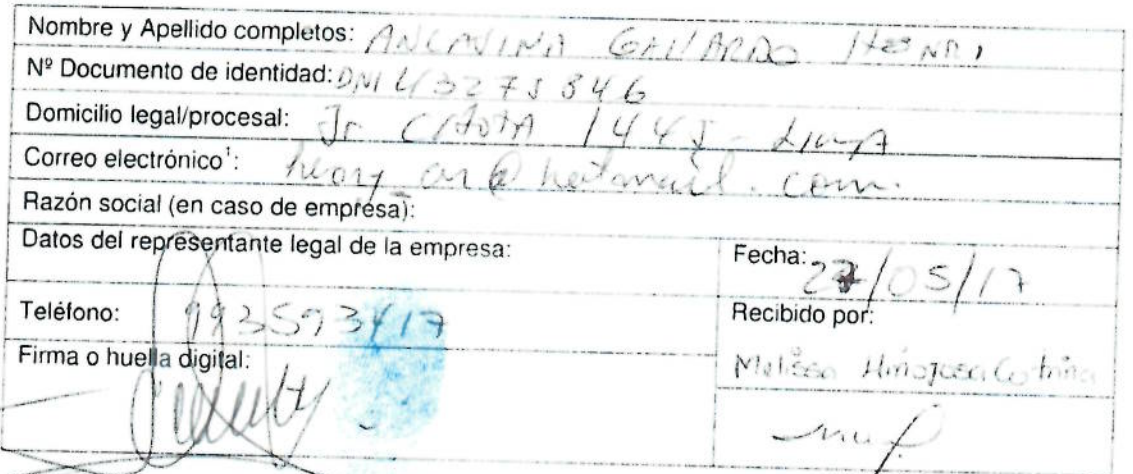 Nombre y Apellido completos: ANCAVINA GALLARDO HENRI
Nº Documento de identidad: DNI 43275846
Domicilio legal/procesal: Jr CHOTA 1445 - LIMA
Correo electrónico¹: @hotmail.com.
Razón social (en caso de empresa):
Datos del representante legal de la empresa:
Fecha: 27/05/17
Teléfono: 993593417
Recibido por:
Melissa Hinojosa Cotrina
Firma o huella digital: